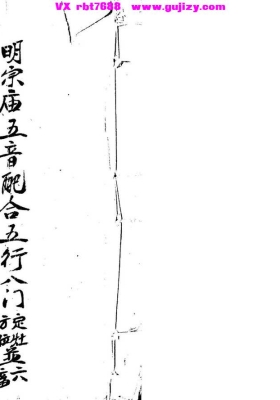 VX rbt7688 www.gujizy.com
明宗庙五音配合五行八门定灶方位並六